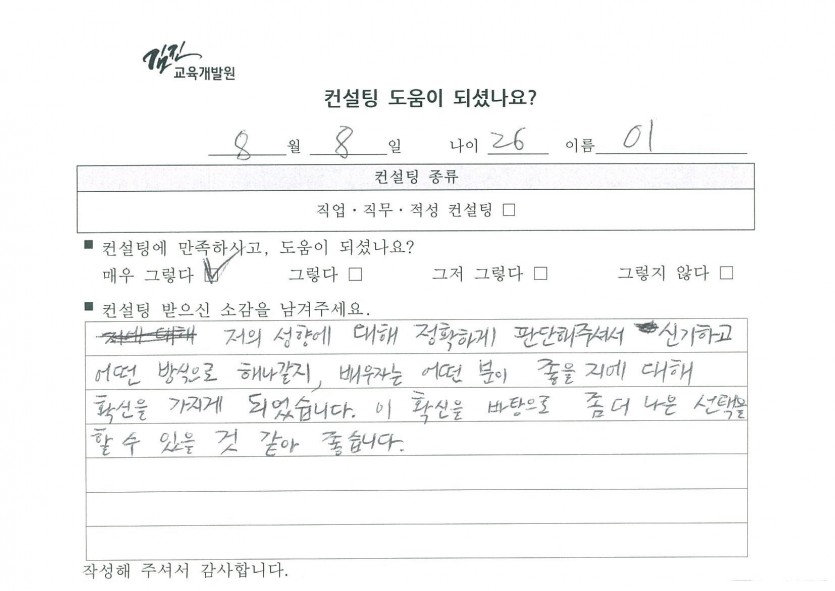 김진
교육개발원
컨설팅 도움이 되셨나요?
8 월 8 일 나이 26 이름 이
컨설팅 종류
직업·직무·적성 컨설팅 □
■ 컨설팅에 만족하사고, 도움이 되셨나요?
매우 그렇다 ☑ 그렇다 □ 그저 그렇다 □ 그렇지 않다 □
■ 컨설팅 받으신 소감을 남겨주세요.
저의 성향에 대해 정확하게 판단해주셔서 신기하고
어떤 방식으로 해나갈지, 배우자는 어떤 분이 좋을 지에 대해
확신을 가지게 되었습니다. 이 확신을 바탕으로 좀 더 나은 선택을
할 수 있을 것 같아 좋습니다.
작성해 주셔서 감사합니다.